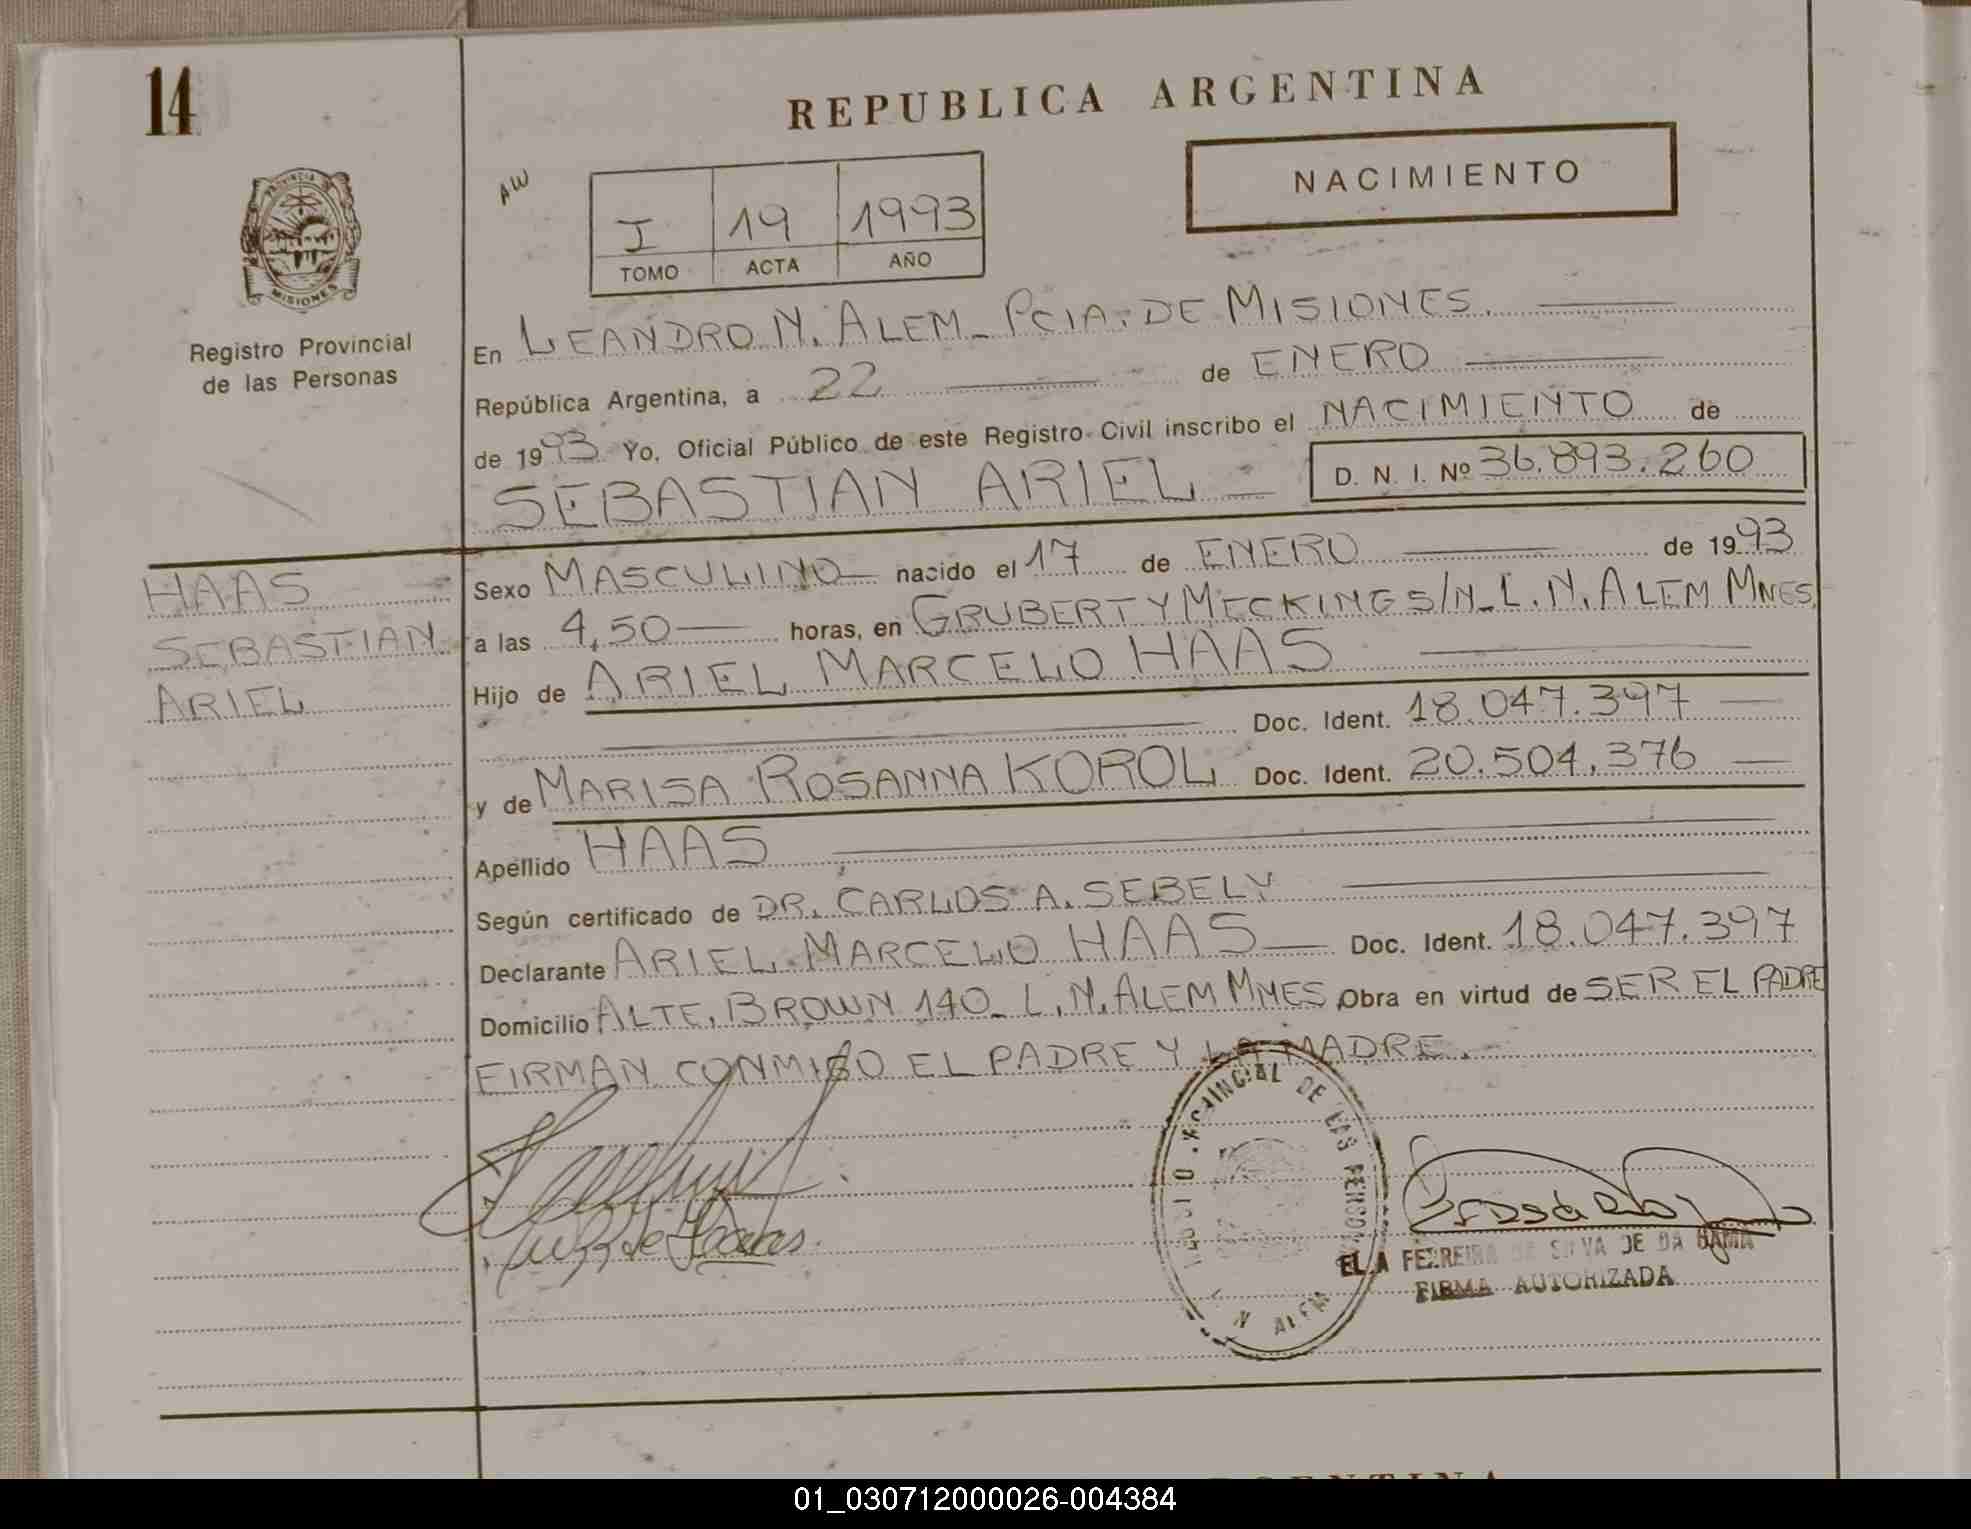 14
REPUBLICA ARGENTINA
NACIMIENTO
AW
I 19 1993
TOMO ACTA AÑO
PROVINCIA DE
MISIONES
Registro Provincial
de las Personas
En LEANDRO N. ALEM_ PCIA. DE MISIONES.
República Argentina, a 22 de ENERO
de 1993 Yo, Oficial Público de este Registro Civil inscribo el NACIMIENTO de
SEBASTIAN ARIEL D. N. I. Nº 36.893.260
HAAS
SEBASTIAN
ARIEL
Sexo MASCULINO nacido el 17 de ENERO de 1993
a las 4,50 horas, en GRUBERT Y MECKING S/N_L.N.ALEM MNES.
Hijo de ARIEL MARCELO HAAS
Doc. Ident. 18.047.397
y de MARISA ROSANNA KOROL Doc. Ident. 20.504.376
Apellido HAAS
Según certificado de DR. CARLOS A. SEBELY
Declarante ARIEL MARCELO HAAS Doc. Ident. 18.047.397
Domicilio ALTE. BROWN 140_ L.N.ALEM MNES Obra en virtud de SER EL PADRE
FIRMAN CONMIGO EL PADRE Y LA MADRE.
DE LAS
N ALEM
de Haas
FERREIRA DE SILVA DE DA GAMA
FIRMA AUTORIZADA
01_030712000026-004384